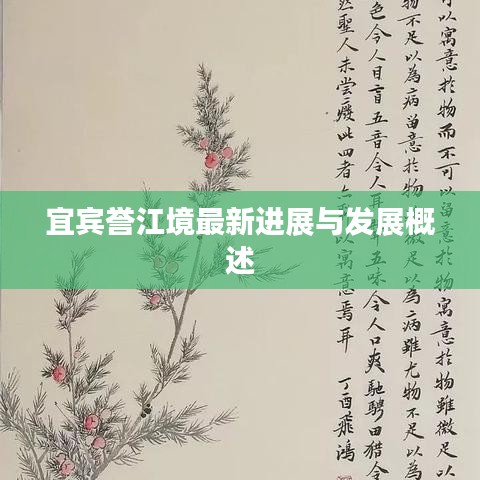 宜宾誉江境最新进展与发展概
述
可以寓意於物而不可以留意於物寓意於物雖微足以
物不足以為病留意於物雖微足以為病雖尤物不足以為
色令人目盲五音令人耳五味令人口爽馳騁田獵令
然聖人未嘗癈此四者以寓意焉耳
丁酉飛鴻